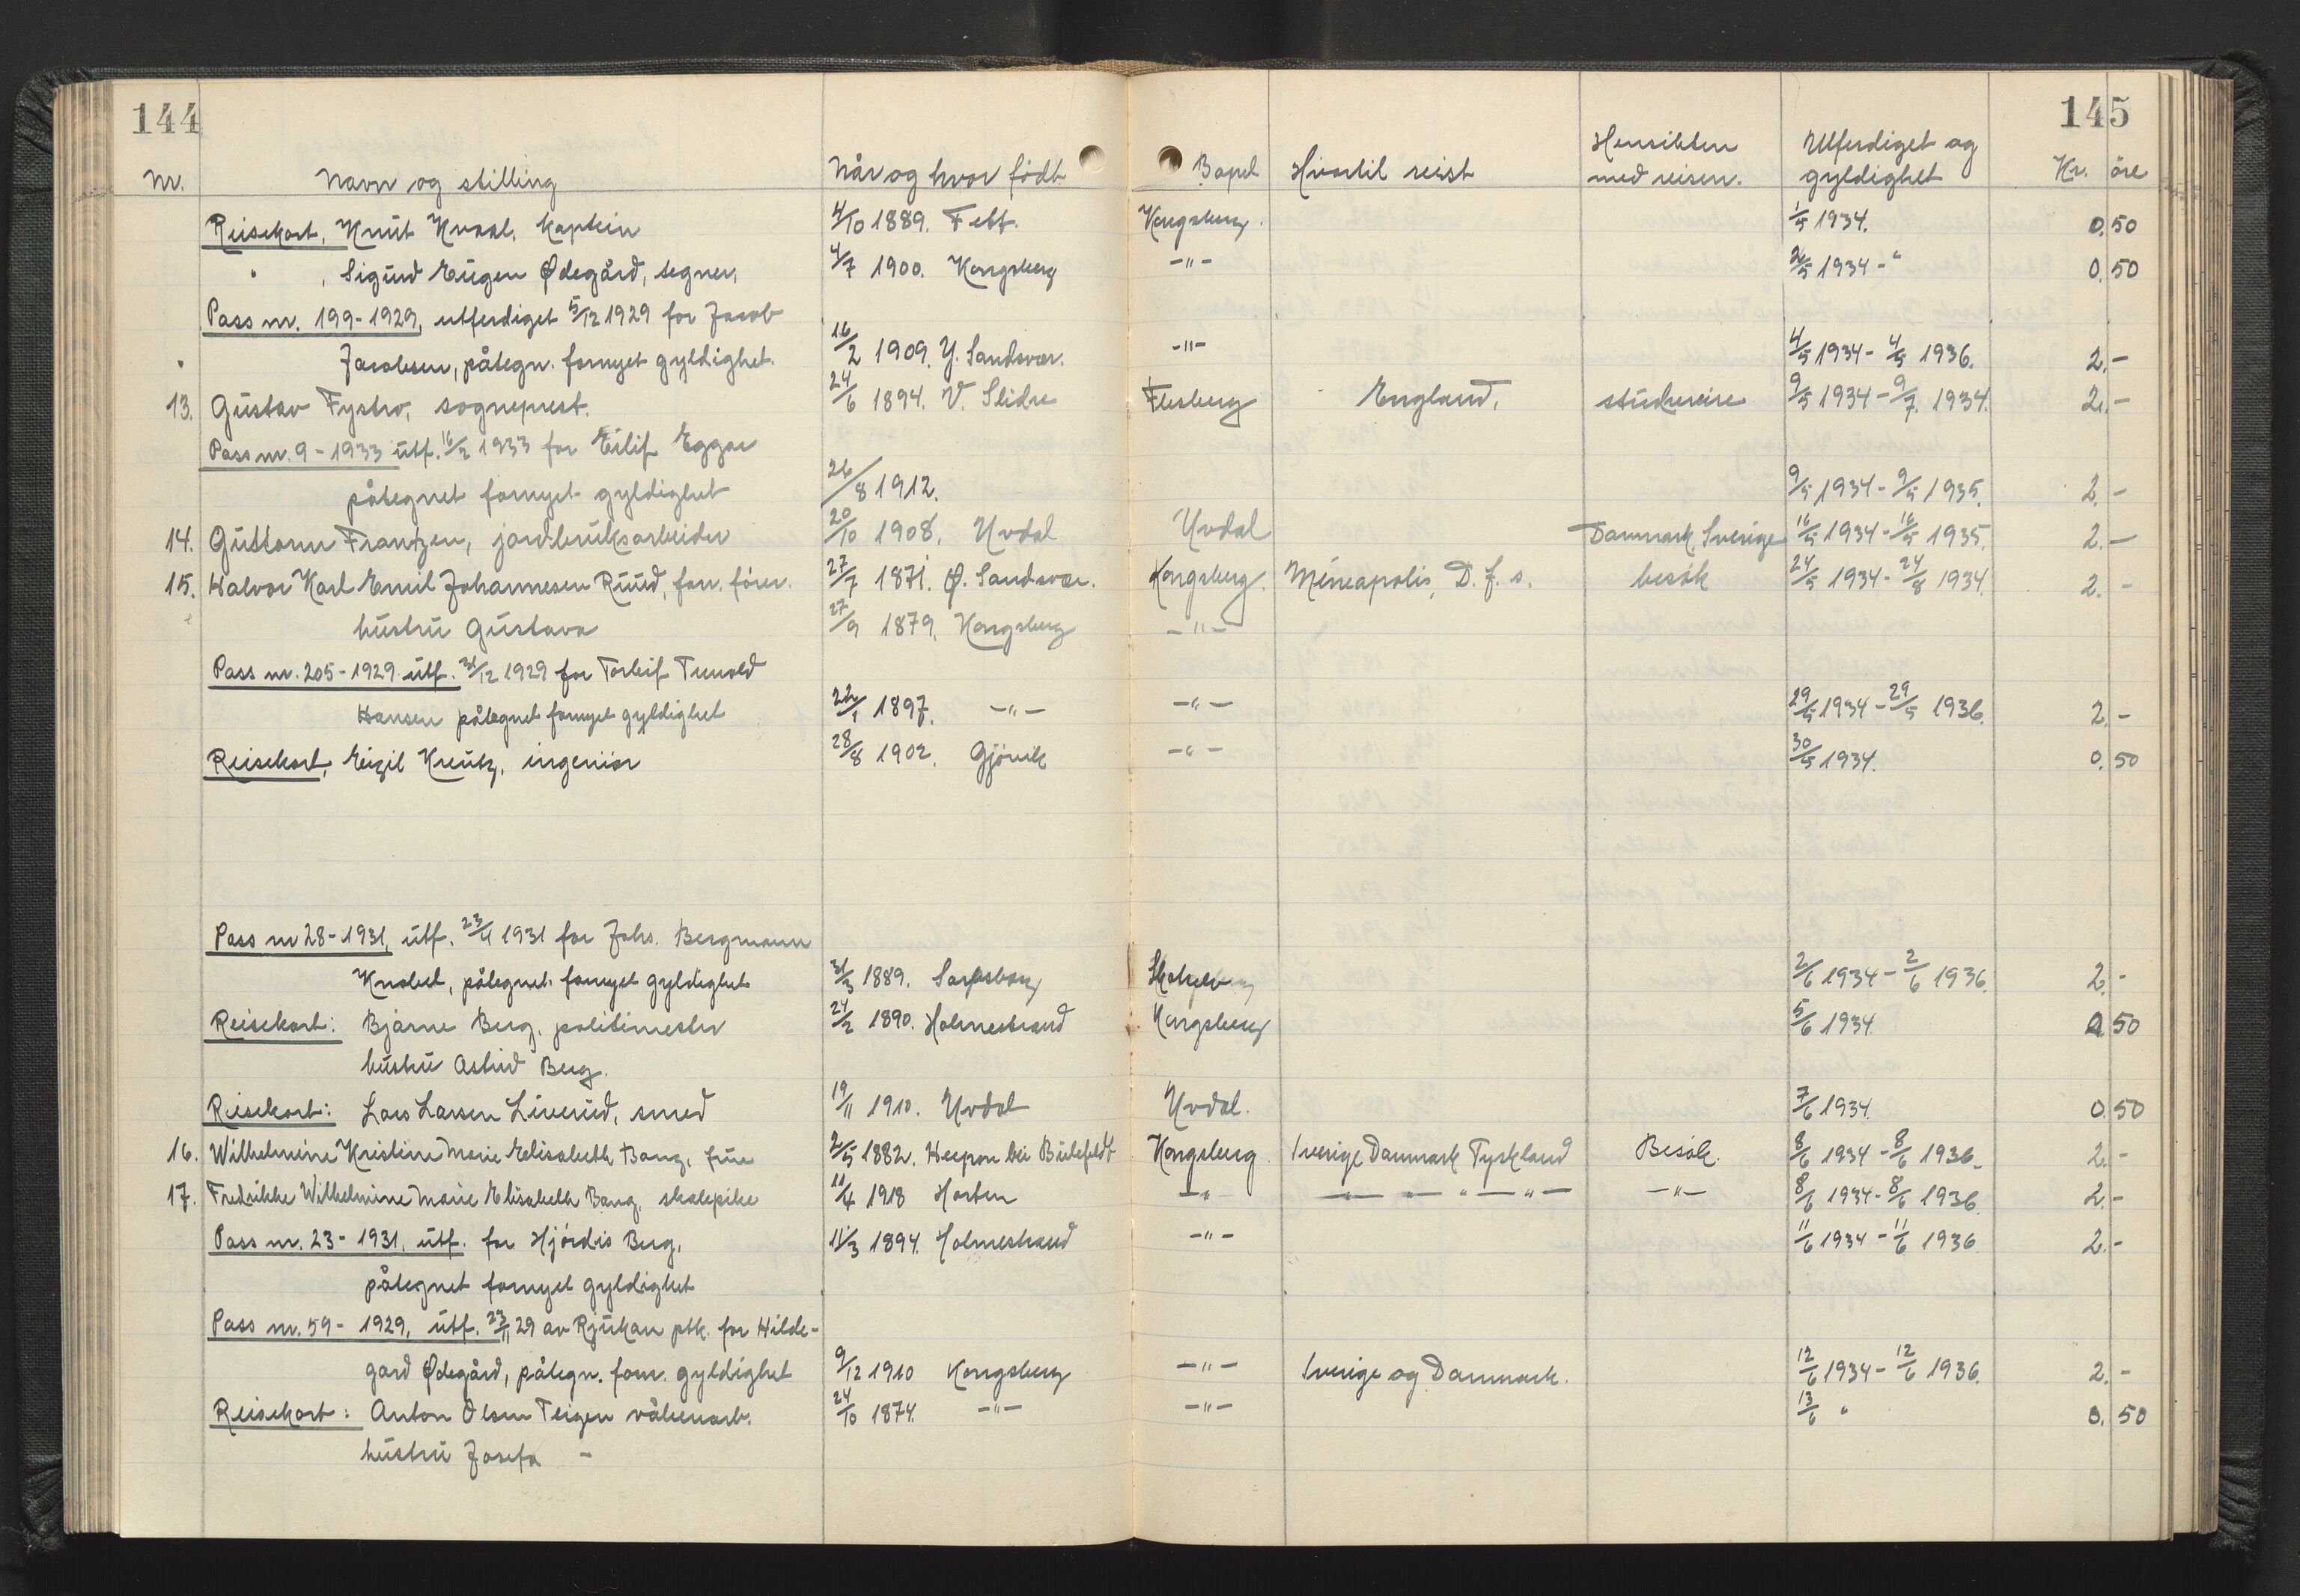 144
145
Nr. Navn og stilling Når og hvor født Bopel Hvortil reist Hensikten med reisen. Utferdiget og gyldighet Kr. öre
Reisekort, Knut Kvaal, kaptein 4/10 1889. Fet. Kongsberg. 1/5 1934. 0.50
" , Sigurd Eugen Ødegård, tegner, 4/7 1900. Kongsberg -"- 2/5 1934 - " 0.50
Pass nr. 199-1929, utferdiget 5/12 1929 for Jacob
Jacobsen, påtegn. fornyet gyldighet. 16/2 1909. Y. Sandsvær. -"- 4/5 1934 - 4/5 1936. 2.-
13. Gustav Fystro, sogneprest. 24/6 1894. V. Slidre Flesberg England, studiereise 9/5 1934 - 9/7 1934. 2.-
Pass nr. 9-1933 utf. 16/2 1933 for Eilif Eggar
påtegnet fornyet gyldighet 26/8 1912. 9/5 1934 - 9/5 1935. 2.-
14. Guttorm Frantzen, jordbruksarbeider 20/10 1908. Uvdal Uvdal Danmark, Sverige 16/5 1934 - 16/5 1935. 2.-
15. Halvor Karl Emil Johannesen Ruud, forr. fører. 27/7 1871. Ø. Sandsvær. Kongsberg. Mineapolis, D. f. s. besök 24/5 1934 - 24/8 1934. 2.-
hustru Gustava 27/9 1879. Kongsberg -"-
Pass nr. 205-1929 utf. 31/12 1929 for Torleif Tuvald
Hansen påtegnet fornyet gyldighet 22/1 1897. -"- -"- 29/5 1934 - 29/5 1936. 2.-
Reisekort, Eigil Kreutz, ingeniör 28/8 1902. Gjövik -"- 30/5 1934. 0.50
Pass nr 28-1931, utf. 23/4 1931 for Johs. Bergmann
Knobel, påtegnet fornyet gyldighet 31/3 1889. Sarpsborg 2/6 1934 - 2/6 1936. 2.-
Reisekort: Bjarne Berg, politimester 24/2 1890. Holmestrand Kongsberg 5/6 1934. 0.50
hustru Astrid Berg.
Reisekort: Lars Larsen Liverud, smed 19/11 1910. Uvdal Uvdal. 7/6 1934. 0.50
16. Wilhelmine Kristine Marie Elisabeth Bang, frue 2/5 1882. Heepen bei Bielefeldt Kongsberg. Sverige Danmark Tyskland Besök. 8/6 1934 - 8/6 1936. 2.-
17. Fredrikke Wilhelmine Marie Elisabeth Bang, skolepike 11/4 1918 Horten -"- -"- -"- -"- -"- 8/6 1934 - 8/6 1936. 2.-
Pass nr. 23-1931, utf. for Hjördis Berg, 11/3 1894. Holmestrand -"- 11/6 1934 - 11/6 1936. 2.-
påtegnet fornyet gyldighet
Pass nr. 59-1929, utf. 23/11 29 av Rjukan ptk. for Hilde-
gard Ødegård, påtegn. forn. gyldighet 9/12 1910 Kongsberg -"- Sverige og Danmark. 12/6 1934 - 12/6 1936. 2.-
Reisekort: Anton Olsen Teigen våbenarb. 24/10 1874. -"- -"- 13/6 " 0.50
hustru Josefa -